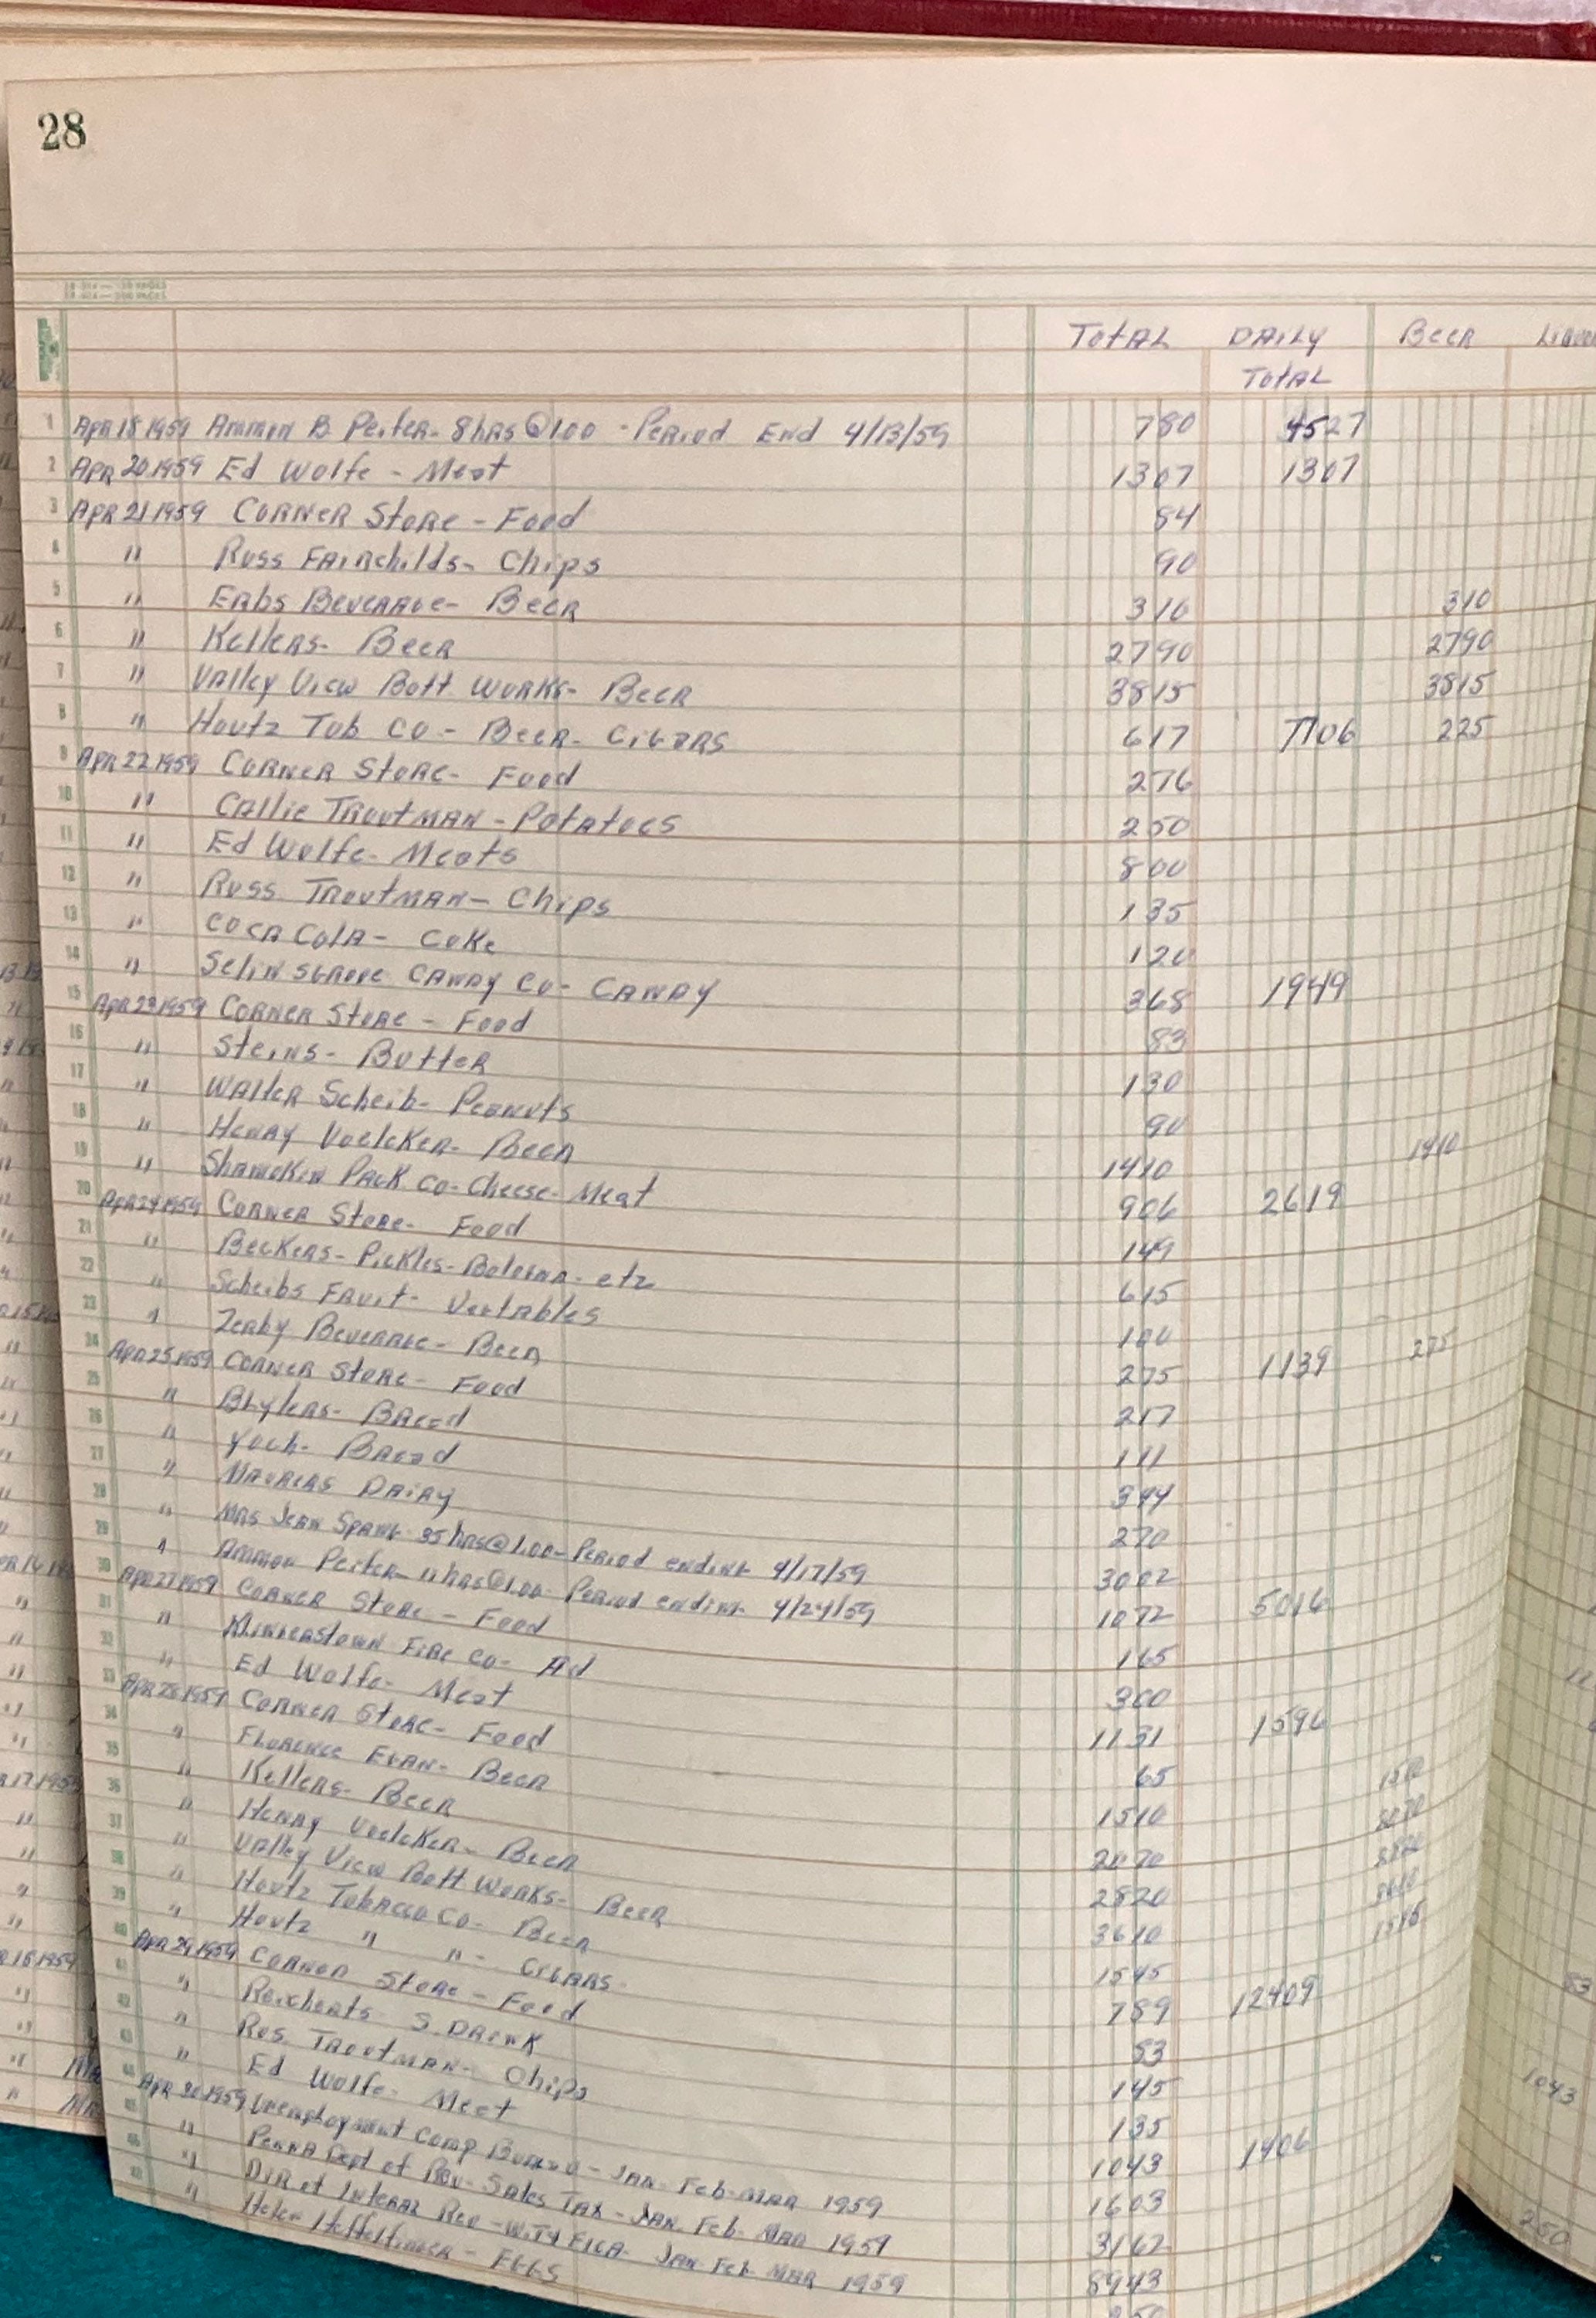 28
TOTAL DAILY BEER
TOTAL
1 APR 18 1959 Ammon B. Peifer- 8 hrs @ 1.00 - Period End 4/13/59 780 4527
2 APR 20 1959 Ed Wolfe - Meat 1307 1307
3 APR 21 1959 CORNER STORE - Food 84
4 " RUSS FAIRchilds- Chips 90
5 " ERbs BEVERAGE- BEER 310 310
6 " KELLERS- BEER 2790 2790
7 " VAlley View Bott. WORKS- BEER 3815 3815
8 " Houtz Tob CO - BEER- CIGARS 617 7706 225
9 APR 22 1959 CORNER STORE- Food 276
10 " CAllie TROUTMAN - POTATOES 250
11 " Ed Wolfe- Meats 800
12 " RUSS. TROUTMAN- Chips 135
13 " COCA COLA- COKE 120
14 " Selinsgrove CANDY CO- CANDY 368 1949
15 APR 23 1959 CORNER STORE - Food 83
16 " STEINS- BUTTER 130
17 " WALTER Scheib- Peanuts 90
18 " HENRY VOELCKER- BEER 1410 1410
19 " Shamokin PACK CO- Cheese- Meat 906 2619
20 APR 24 1959 CORNER STORE- Food 149
21 " BECKERS- Pickles- Bologna- etc 615
22 " Scheibs FRUIT- Vegtables 100
23 " Zerby BEVERAGE- BEER 275 1139 275
24 APR 25 1959 CORNER STORE- Food 217
25 " Bread 111
26 " Bread 344
27 " DAIRY 270
28 " MRS JEAN 35 hrs @ 1.00- Period ending 4/17/59 3002
29 " Ammon Peifer- 11 hrs @ 1.00- Period ending 4/24/59 1072 5016
30 APR 27 1959 CORNER STORE - Food 165
31 " Klingerstown FIRE CO- Ad 300
32 " Ed Wolfe- Meat 1131 1596
33 APR 28 1959 CORNER STORE- Food 65
34 " FLORENCE EGAN- BEER 1510 1510
35 " Kellers- BEER 2070
36 " HENRY VOELCKER- BEER 2820
37 " Valley View Bott. WORKS- BEER 3610 3610
38 " Houtz TOBACCO CO- BEER 1545 1545
39 " Houtz " " - CIGARS- 789 12409
40 APR 29 1959 CORNER STORE - Food 83
41 " Reicherts- S. DRINK 145
42 " RUS. TROUTMAN- Chips 135
43 " Ed Wolfe- Meat 1043 1406
44 APR 30 1959 Unemployment Comp Bureau - JAN- Feb- MAR 1959 1603
45 " PENNA Dept of Rev- Sales TAX - JAN. Feb- MAR 1959 3162
46 " DIR of Internal Rev - FICA- JAN- Feb- MAR 1959 8943
47 " Helen Heffelfinger - EGGS
1043
250